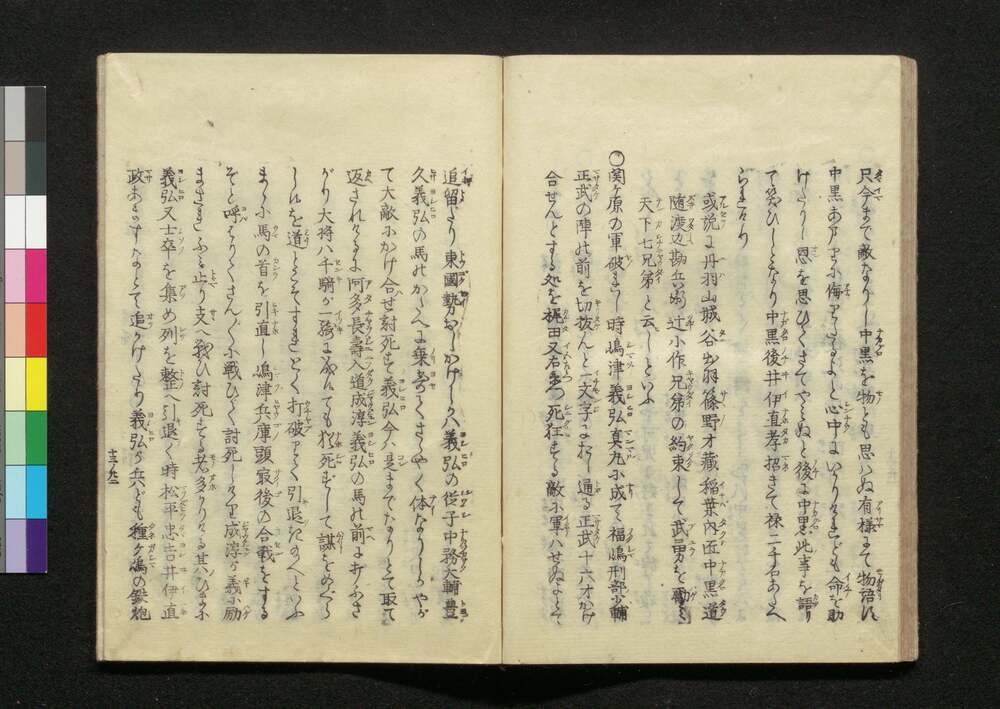 只今まで敵なりし中黒を物とも思ハぬ有様にて物語に
中黒あまりに侮りたるよと心中にいかりけれども命を助
けたりし恩を思ひてさてやミぬと後に中黒此事を語り
て笑ひしとなり中黒後井伊直孝招きて禄二千石あたへ
られたり
或説に丹羽山城谷出羽篠野才藏稲葉內匠中黒道
随渡辺勘兵衛辻小作兄弟の約束して武勇を励こ
天下七兄弟と云しといふ
○関ヶ原の軍破れし時嶋津義弘真丸に成て福嶋刑部少輔
正武の陣の前を切抜んと一文字におし通る正武十六才かけ
合せんとする処を梶田又右衛門死狂する敵に軍ハせぬよとて
追留たり東國勢おしかけしかハ義弘の従子中務大輔豊
久義弘の馬のかたへに乗よせてさゝやく体なりしかやがて
て大敵にかけ合せ討死す義弘今ハ是までなりとて取て
返されけるに阿多長壽入道成淳義弘の馬の前に打ふさ
がり大将ハ千騎が一騎になりても猶死せずして謀をめぐら
しれを道とこそすれとく打破りて引退たまへといふ
まゝに馬の首を引直し嶋津兵庫頭最後の合戦をする
そと呼はりてさんざんに戦ひて討死しけり成淳が義に励
まされふミ止り支へ戦ひ討死する者多かりける其ひまに
義弘又士卒を集め列を整へ引退く時松平忠吉井伊直
政あますまじとて追かけたり義弘が兵ども種ヶ嶋の鉄炮
十三ノ九二